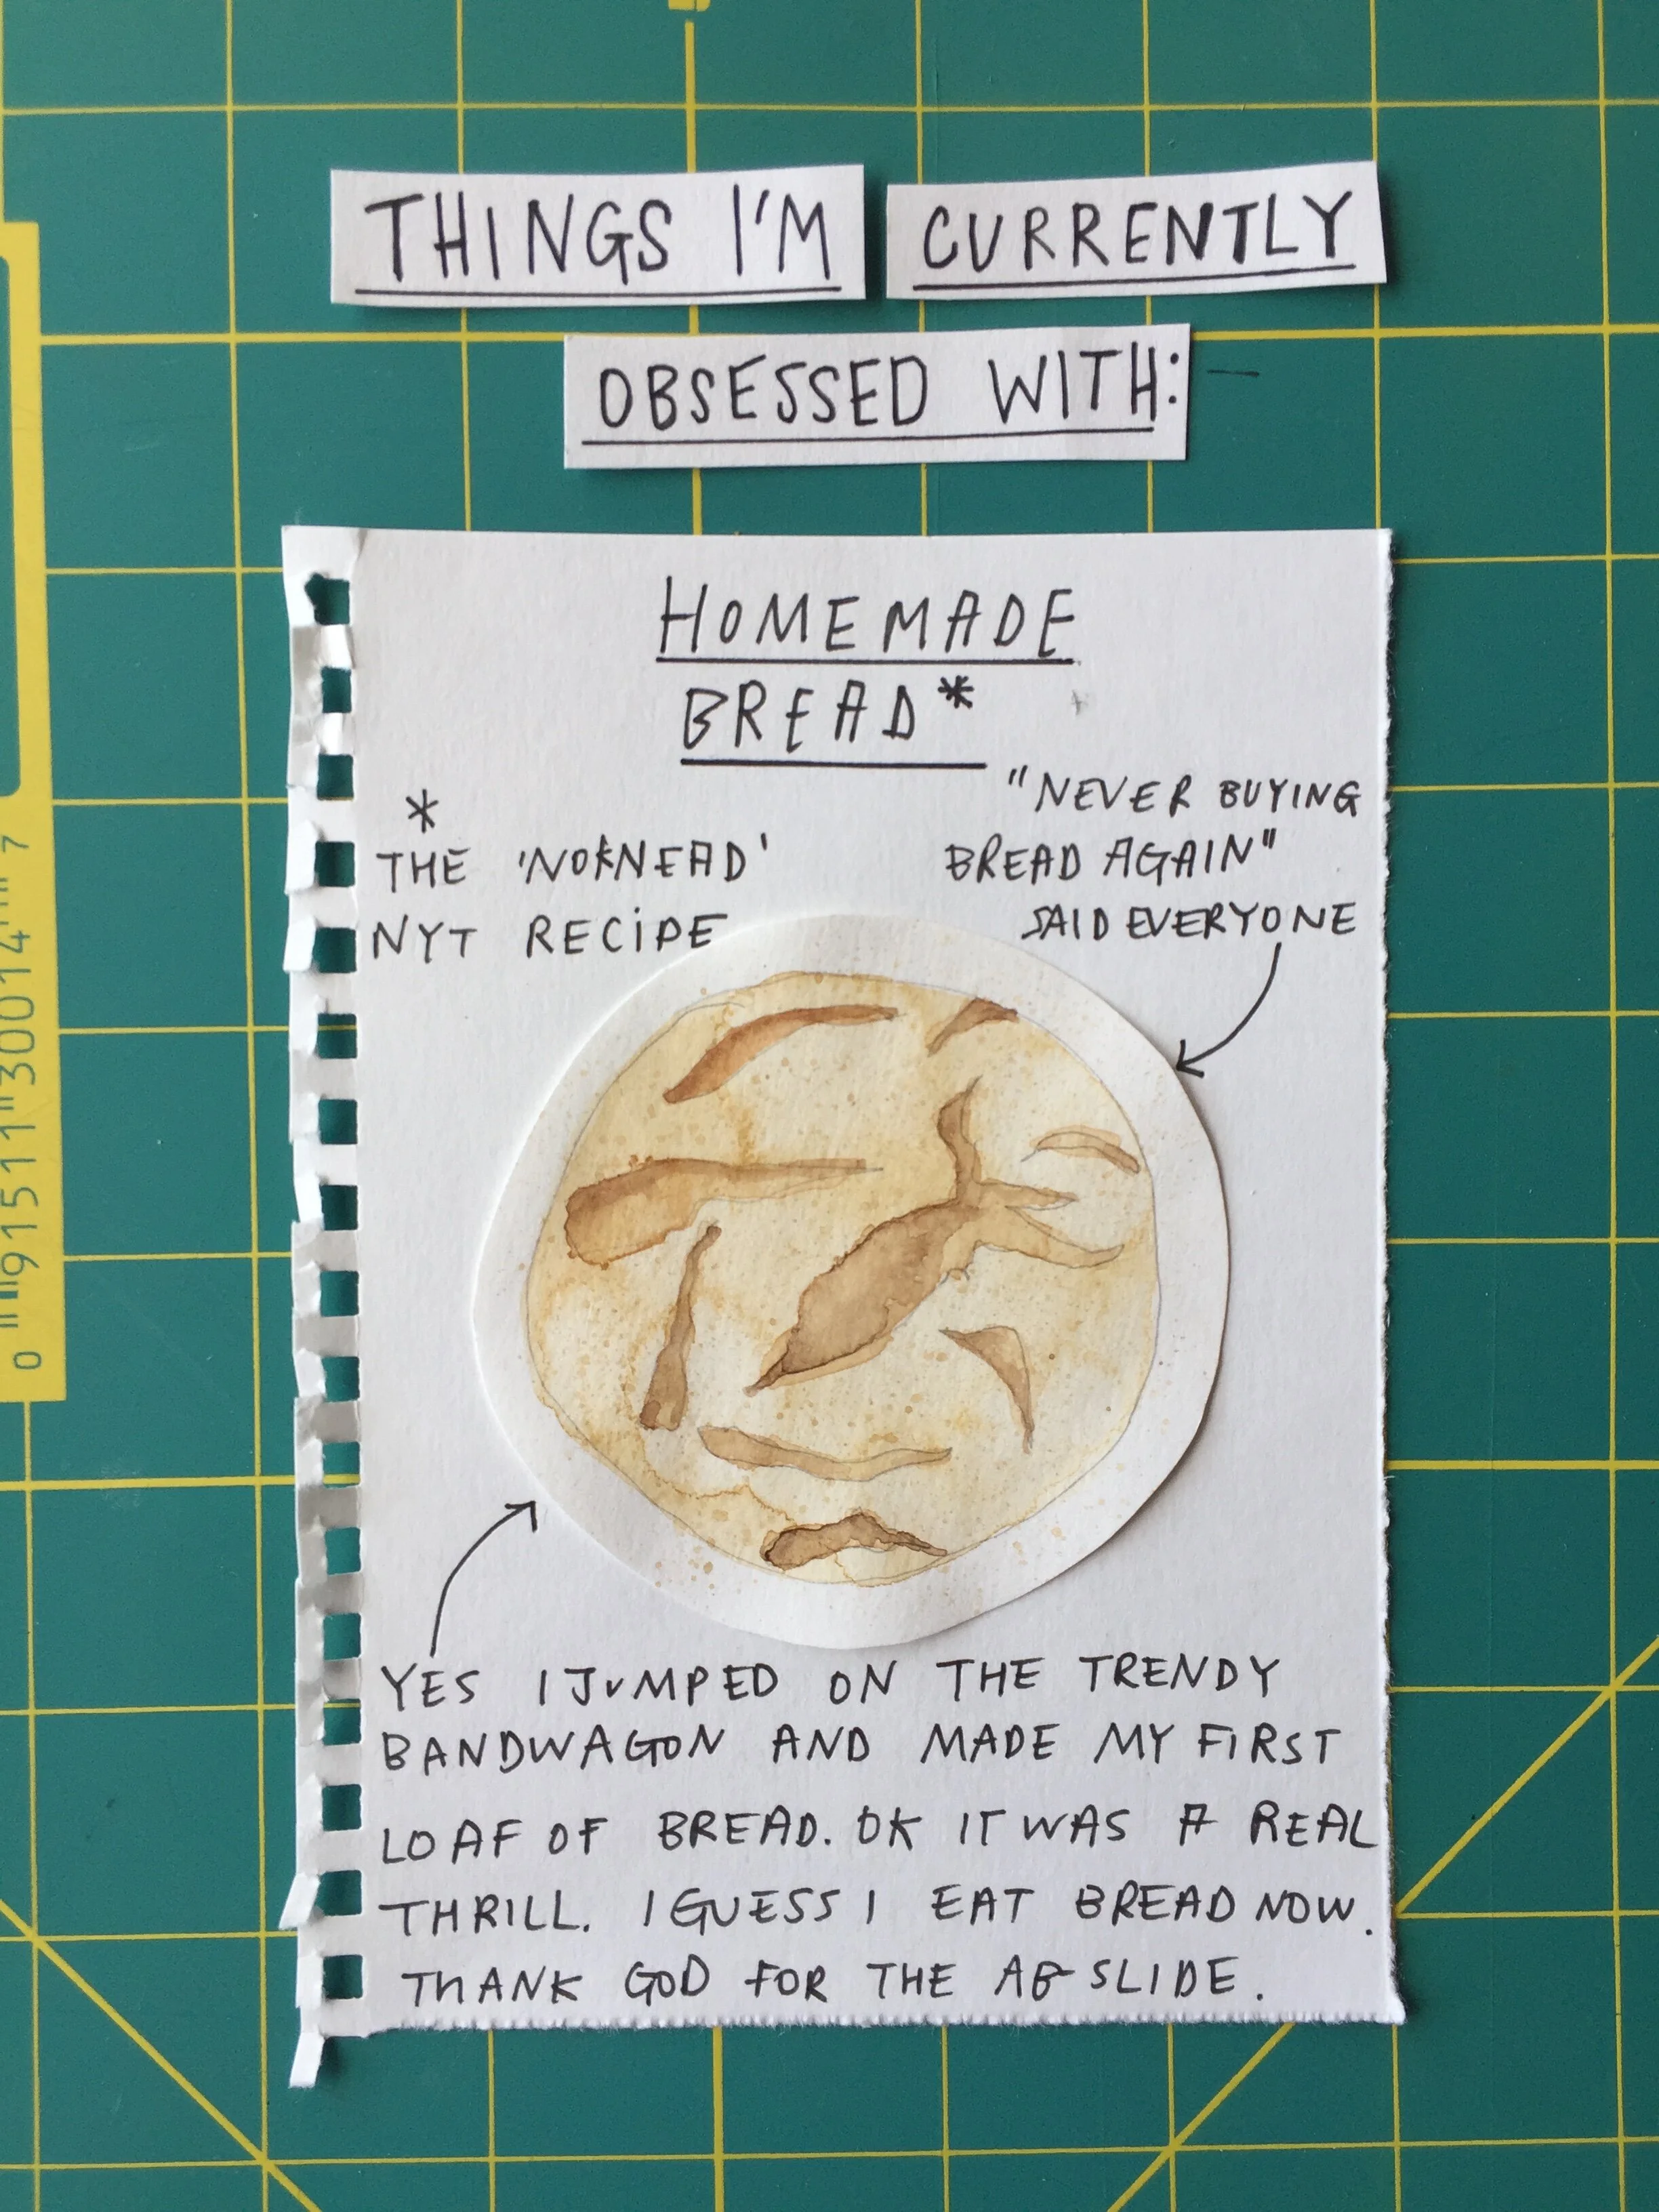 THINGS I'M CURRENTLY
OBSESSED WITH:
HOMEMADE
BREAD*
*
THE 'NOKNEAD'
NYT RECIPE
"NEVER BUYING
BREAD AGAIN"
SAID EVERYONE
YES I JUMPED ON THE TRENDY
BANDWAGON AND MADE MY FIRST
LOAF OF BREAD. OK IT WAS A REAL
THRILL. I GUESS I EAT BREAD NOW.
THANK GOD FOR THE AB SLIDE.
0 91511 30014 7